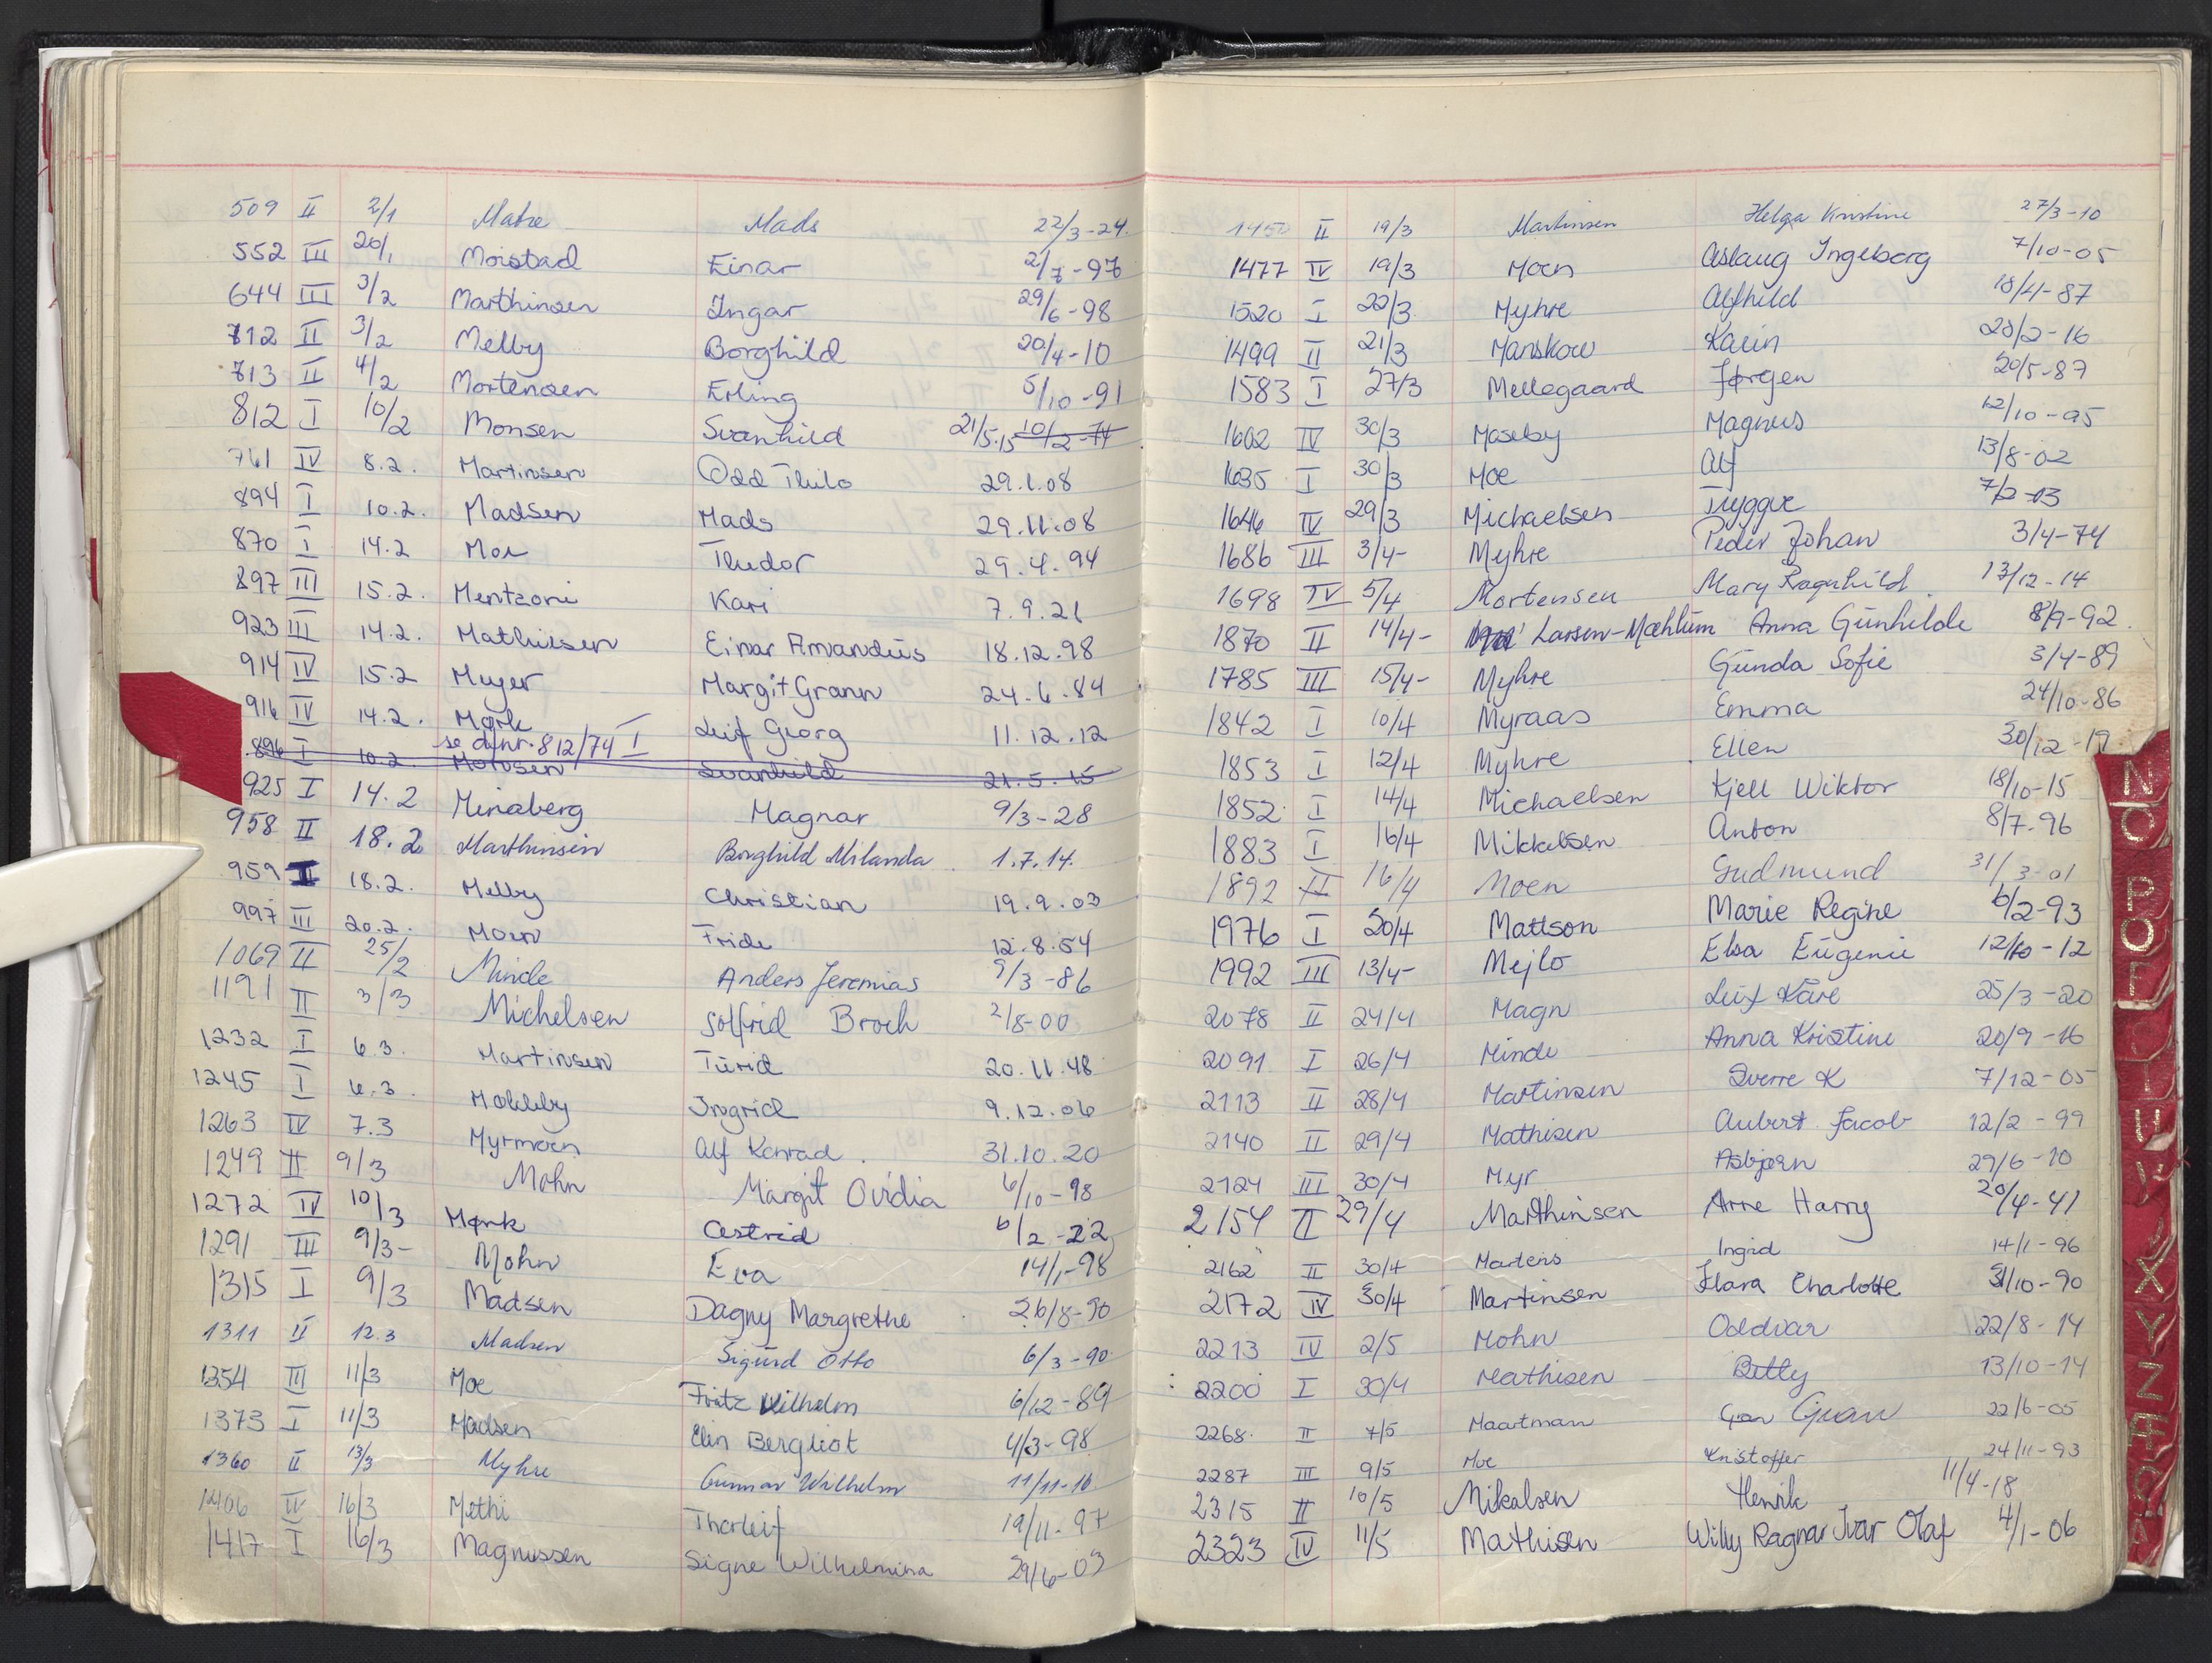 509 II 2/1 Matre Mads 22/3-24
552 III 20/1 Moistad Einar 2/7-97
644 III 3/2 Marthinsen Ingar 29/6-98
712 II 3/2 Melby Borghild 20/4-10
713 II 4/2 Mortensen Erling 5/10-91
812 I 10/2 Monsen Svanhild 21/5.15 10/2-74
761 IV 8.2. Martinsen Odd Thilo 29.1.08
894 I 10.2. Madsen Mads 29.11.08
870 I 14.2 Moe Thudor 29.4.94
897 III 15.2. Mentzoni Kari 7.9.21
923 III 14.2. Mathiesen Einar Amandus 18.12.98
914 IV 15.2 Meyer Margit Grann 24.6.84
916 IV 14.2. Mørk Leif Georg 11.12.12
se dnr. 812/74 I
896 I 10.2. Monsen Svanhild 21.5.15
925 I 14.2 Minaberg Magnar 9/3-28
958 II 18.2 Marthinsen Borghild Milanda 1.7.14.
959 I 18.2. Melby Christian 19.9.03
997 III 20.2. Moen Fride 12.8.54
1069 II 25/2 Minde Anders Jeremias 9/3-86
1191 II 3/3 Michelsen Solfrid Broch 2/8-00
1232 I 6.3. Martinsen Turid 20.11.48
1245 I 6.3. Mokkby Ingrid 9.12.06
1263 IV 7.3 Myrmoen Alf Konrad. 31.10.20
1249 II 9/3 Mohn Margit Ovidia 6/10-98
1272 IV 10/3 Mørk Astrid 6/2-22
1291 III 9/3- Mohn Eva 14/1-98
1315 I 9/3 Madsen Dagny Margrethe 26/8-90
1311 II 12.3 Madsen Sigurd Otto 6/3-90
1354 III 11/3 Moe Fritz Wilhelm 6/12-89
1373 I 11/3 Madsen Elin Bergliot 4/3-98
1360 II 13/3 Myhre Gunnar Wilhelm 11/11-10
1406 IV 16/3 Methi Thorleif 19/11-97
1417 I 16/3 Magnussen Signe Wilhelmina 29/6-03
1450 II 19/3 Martinsen Helga Kristine 27/3-10
1477 IV 19/3 Moen Aslaug Ingeborg 7/10-05
1520 I 22/3 Myhre Alfhild 18/4-87
1499 II 21/3 Manskow Karin 20/2-16
1583 I 27/3 Mellegaard Jørgen 20/5-87
1602 IV 30/3 Moseby Magnus 12/10-95
1635 I 30/3 Moe Alf 13/8-02
1646 IV 29/3 Michaelsen Tryggve 7/2-03
1686 III 3/4- Myhre Peder Johan 3/4-74
1698 IV 5/4 Mortensen Mary Ragnhild. 17/12-14
1870 II 14/4- Larsen-Mæhlum Anna Gunhilde 8/9-92.
1785 III 15/4- Myhre Gunda Sofie 3/4-89
1842 I 10/4 Myraas Emma 24/10-86
1853 I 12/4 Myhre Ellen 30/12-19
1852 I 14/4 Michaelsen Kjell Wiktor 18/10-15
1883 I 16/4 Mikkelsen Anton 8/7-96
1892 II 16/4 Moen Gudmund 31/3-01
1976 I 20/4 Mattson Marie Regine 6/2-93
1992 III 13/4- Mejlo Elsa Eugenie 12/10-12
2078 II 24/4 Magn Leif Kåre 25/3-20
2091 I 26/4 Minde Anna Kristine 20/9-16
2113 II 28/4 Martinsen Sverre K 7/12-05
2140 II 29/4 Mathisen Aubert Jacob 12/2-99
2124 III 30/4 Myr Asbjørn 29/6-10
2154 II 29/4 Marthinsen Arne Harry 20/4-41
2162 II 30/4 Martens Ingrid 14/1-96
2172 IV 30/4 Martinsen Klara Charlotte 31/10-90
2213 IV 2/5 Mohn Oddvar 22/8-14
2200 I 30/4 Mathisen Betty 13/10-14
2268 II 7/5 Maartmann Gran Gran 22/6-05
2287 III 9/5 Moe Kristoffer 24/11-93
2315 II 10/5 Mikalsen Henrik 11/4-18
2323 IV 11/5 Mathisen Willy Ragnar Ivar Olaf 4/1-06
N
O
P
O
X
Y
Z
Æ
Ø